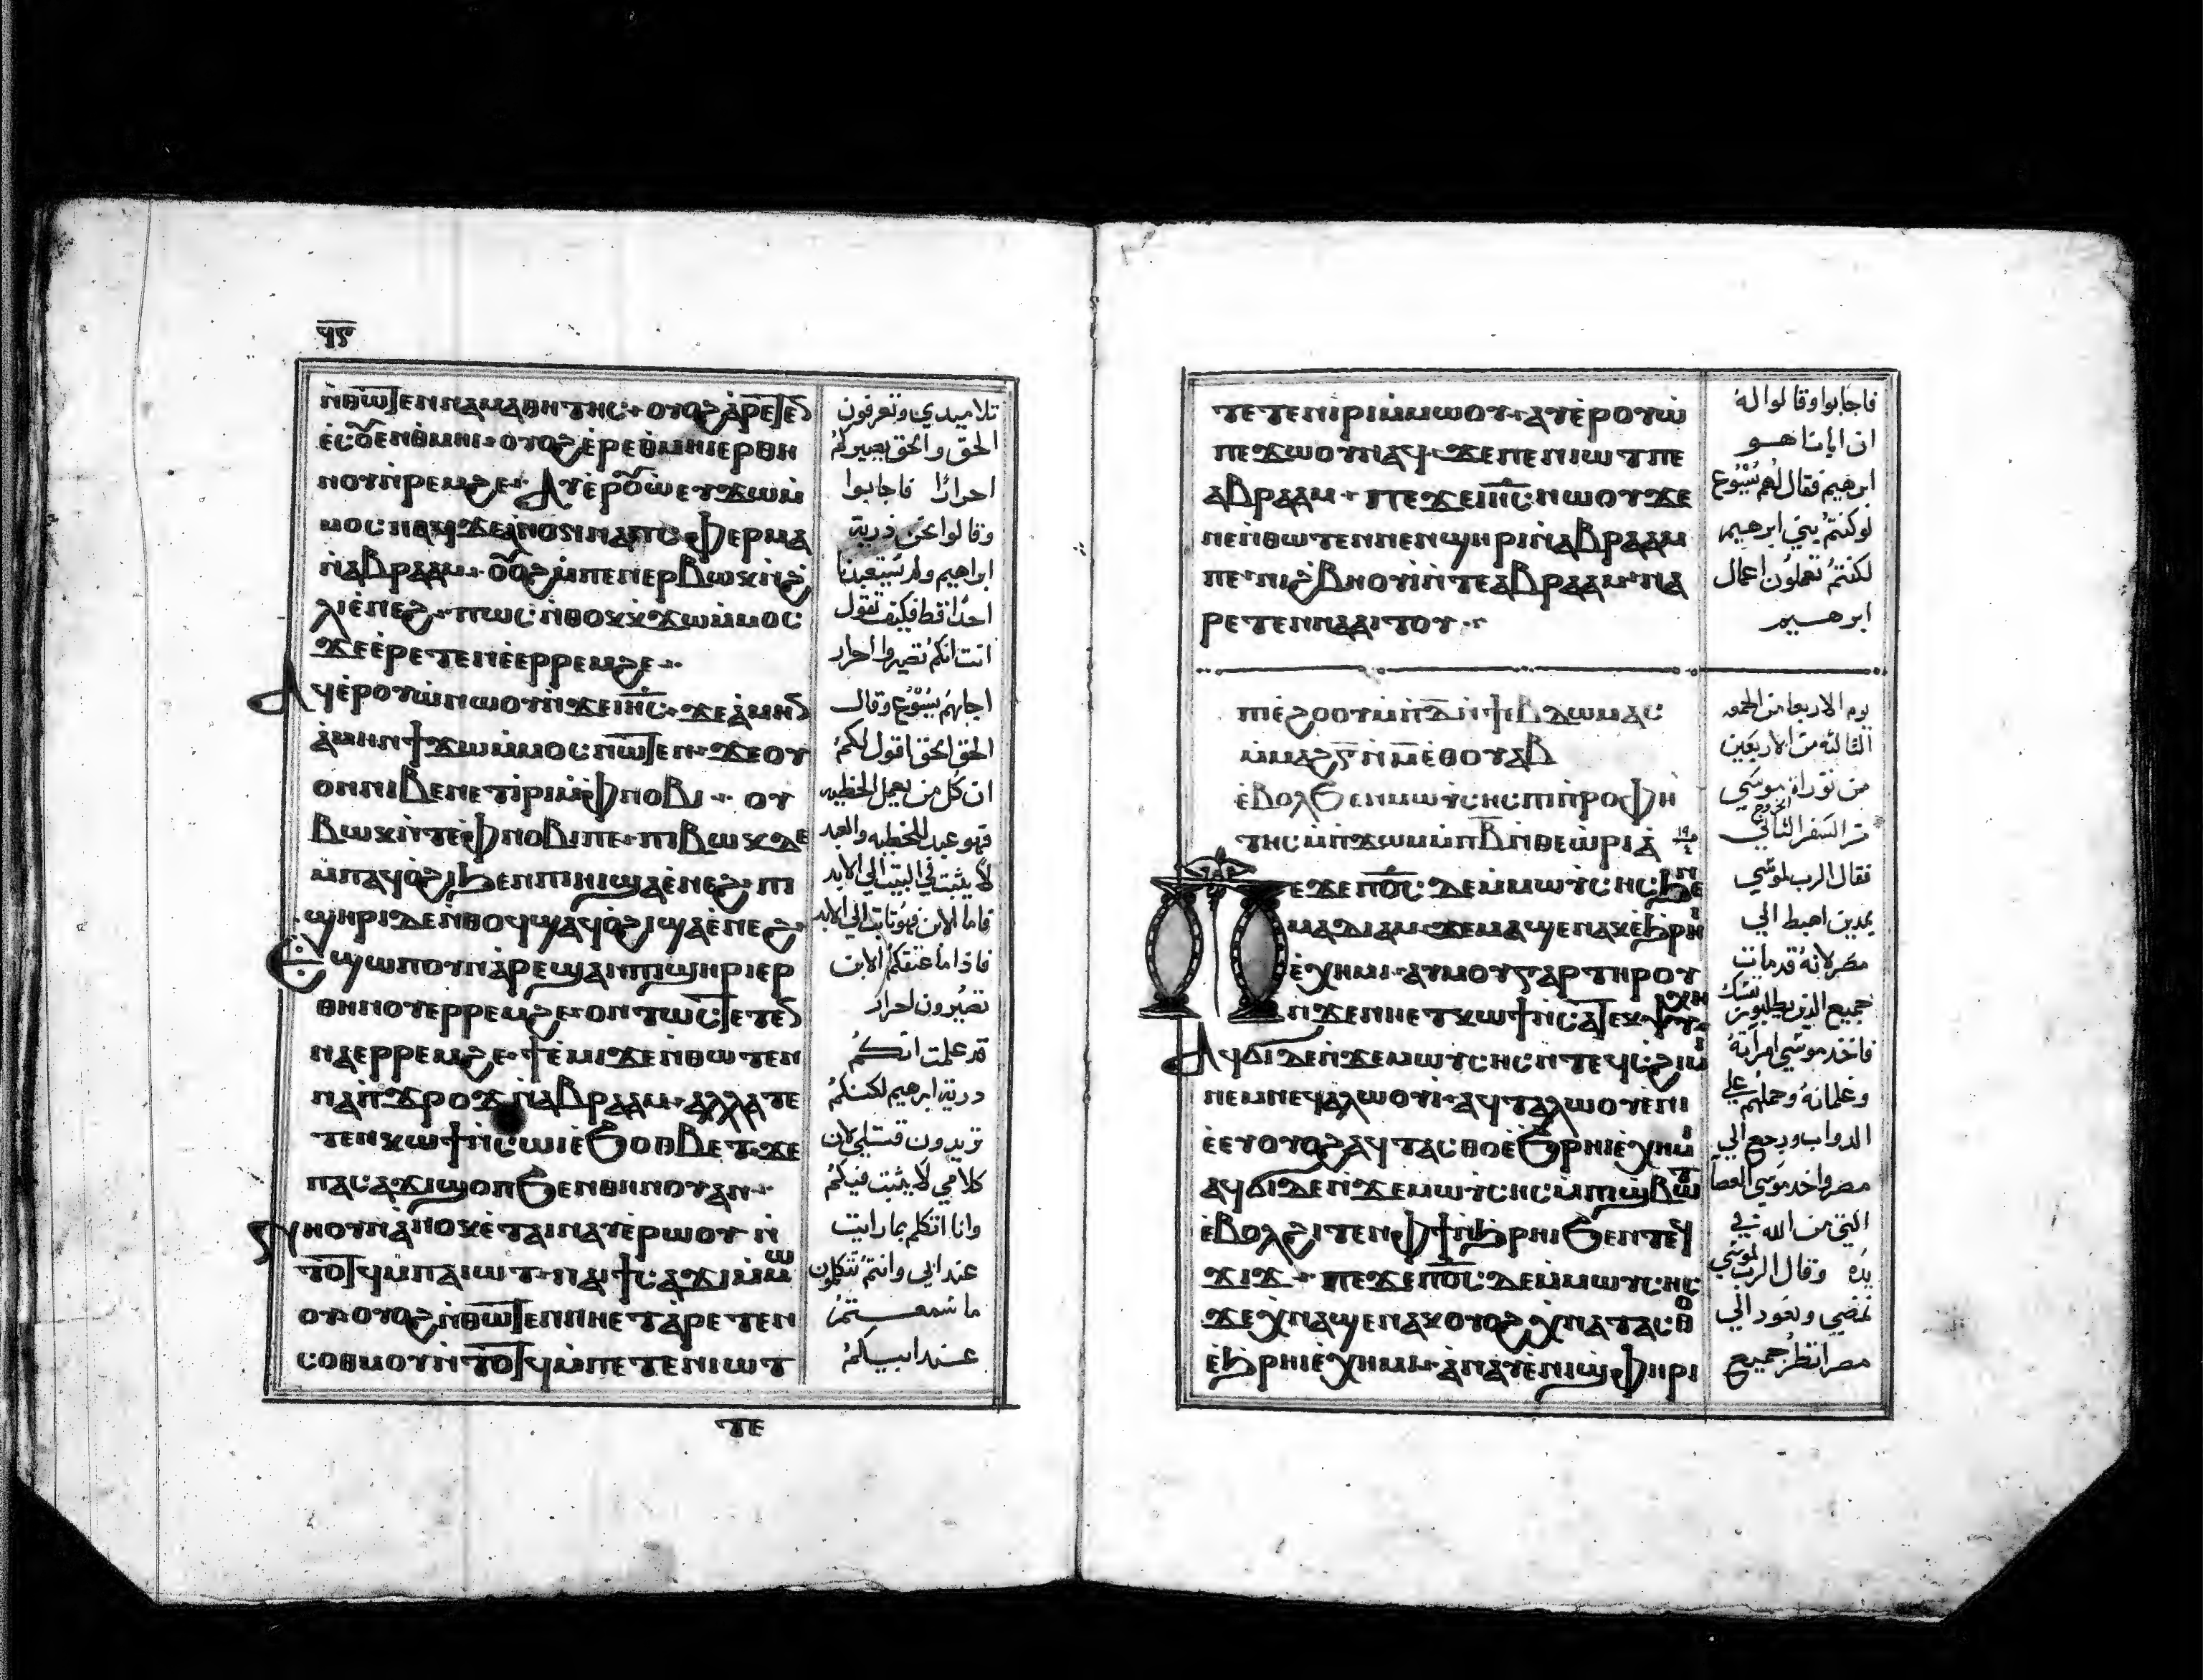 ϥⲋ
ⲛ̀ⲑⲱⲧⲉⲛ ⲛⲁⲙⲁⲑⲏⲧⲏⲥ· ⲟⲩⲟϩ ⲁ̀ⲣⲉⲧⲉ
ⲉ̀ⲥⲟⲩⲉⲛ ⲑⲙⲏⲓ· ⲟⲩⲟϩ ⲉ̀ⲣⲉ ⲑⲙⲏⲓ ⲉⲣ ⲑⲏ
ⲛⲟⲩ ⲛ̀ⲣⲉⲙϩⲉ· ⲁⲩⲉ̀ⲣⲟⲩⲱ ⲉⲩϫⲱ ⲙ̀
ⲙⲟⲥ ⲛⲁϥ ϫⲉ ⲁ̀ⲛⲟⲛ ⲛⲁ ⲡⲥⲡⲉⲣⲙⲁ
ⲛ̀ⲁⲃⲣⲁⲁⲙ· ⲟⲩⲟϩ ⲙ̀ⲡⲉⲛⲉⲣⲃⲱⲕ ⲛ̀ϩ
ⲗⲓ ⲉ̀ⲛⲉϩ· ⲡⲱⲥ ⲛ̀ⲑⲟⲕ ⲕ̀ϫⲱ ⲙ̀ⲙⲟⲥ
ϫⲉ ⲉ̀ⲣⲉⲧⲉⲛⲉ̀ⲉⲣⲣⲉⲙϩⲉ·
ⲁϥⲉ̀ⲣⲟⲩⲱ ⲛⲱⲟⲩ ⲛ̀ϫⲉ ⲓⲏⲥ· ϫⲉ ⲁ̀ⲙⲏⲛ
ⲁ̀ⲙⲏⲛ ϯϫⲱ ⲙ̀ⲙⲟⲥ ⲛⲱⲧⲉⲛ· ϫⲉ ⲟⲩ
ⲟⲛ ⲛⲓⲃⲉⲛ ⲉⲧⲓ̀ⲣⲓ ⲙ̀ⲫⲛⲟⲃⲓ· ⲟⲩ
ⲃⲱⲕ ⲛ̀ⲧⲉ ⲫⲛⲟⲃⲓ ⲡⲉ· ⲡⲓⲃⲱⲕ ⲇⲉ
ⲙ̀ⲡⲁϥⲟ̀ϩⲓ ϧⲉⲛ ⲡⲓⲏⲓ ϣⲁ ⲉ̀ⲛⲉϩ· ⲡⲓ
ϣⲏⲣⲓ ⲇⲉ ⲛ̀ⲑⲟϥ ϣⲁϥⲟ̀ϩⲓ ϣⲁ ⲉ̀ⲛⲉϩ·
ⲉϣⲱⲡ ⲟⲩⲛ ⲁ̀ⲣⲉϣⲁⲛ ⲡⲓϣⲏⲣⲓ ⲉⲣ
ⲑⲏⲛⲟⲩ ⲉⲣⲣⲉⲙϩⲉ· ⲟⲛⲧⲱⲥ ⲧⲉⲧⲉⲛ
ⲛⲁⲉⲣⲣⲉⲙϩⲉ· ϯⲉ̀ⲙⲓ ϫⲉ ⲛ̀ⲑⲱⲧⲉⲛ
ⲛⲁ ⲡ̀ϫⲣⲟϫ ⲛ̀ⲁⲃⲣⲁⲁⲙ· ⲁⲗⲗⲁ ⲧⲉ
ⲧⲉⲛⲕⲱϯ ⲛ̀ⲥⲱⲓ ⲉ̀ϧⲟⲑⲃⲉⲧ· ϫⲉ
ⲡⲁⲥⲁϫⲓ ϣⲟⲡ ϧⲉⲛ ⲑⲏⲛⲟⲩ ⲁⲛ·
ⲛⲏ ⲟⲩⲛ ⲁ̀ⲛⲟⲕ ⲉ̀ⲧⲁⲓⲛⲁⲩ ⲉ̀ⲣⲱⲟⲩ ⲛ̀
ⲧⲟⲧϥ ⲙ̀ⲡⲁⲓⲱⲧ· ⲛⲁⲓ ϯⲥⲁϫⲓ ⲙ̀ⲙⲱ
ⲟⲩ· ⲟⲩⲟϩ ⲛ̀ⲑⲱⲧⲉⲛ ⲛⲏ ⲉⲧⲁ̀ⲣⲉⲧⲉⲛ
ⲥⲟⲑⲙⲟⲩ ⲛ̀ⲧⲟⲧϥ ⲙ̀ⲡⲉⲧⲉⲛⲓⲱⲧ
ⲧⲉ
تلاميدي وتعرفون
الحق والحق يصيركم
احرارًا فاجابوا
وقالوا نحن ذرية
ابراهيم ولم نستعبد
احدًا قط فكيف تقول
انت انكم تصيروا احرار
اجابهم يسوع وقال
الحق الحق اقول لكم
ان كل من يعمل الخطيه
فهو عبد للخطيه والعبد
لا يثبت في البيت الي الابد
فاما الابن فهو ثابت الي الابد
فاذا ما عتقكم الابن
تصيرون احرار
قد علمت انكم
درية ابرهيم لكنكم
تريدون قتلي لان
كلامي لا يثبت فيكم
وانا اتكلم بما رايت
عند ابي وانتم تتكلمون
ما سمعتم
عند ابيكم
ⲧⲉⲧⲉⲛⲓⲣⲓ ⲙ̀ⲙⲱⲟⲩ· ⲁⲩⲉ̀ⲣⲟⲩⲱ
ⲡⲉϫⲱⲟⲩ ⲛⲁϥ· ϫⲉ ⲡⲉⲛⲓⲱⲧ ⲡⲉ
ⲁⲃⲣⲁⲁⲙ· ⲡⲉϫⲉ ⲓⲏⲥ ⲛⲱⲟⲩ ϫⲉ
ⲛⲉ ⲛ̀ⲑⲱⲧⲉⲛ ⲛⲉⲛϣⲏⲣⲓ ⲛ̀ⲁⲃⲣⲁⲁⲙ
ⲡⲉ· ⲛⲓϩⲃⲏⲟⲩⲓ ⲛ̀ⲧⲉ ⲁⲃⲣⲁⲁⲙ ⲛⲁ
ⲣⲉⲧⲉⲛⲛⲁⲁⲓⲧⲟⲩ·
ⲡⲓⲉ̀ϩⲟⲟⲩ ⲙ̀ⲡⲇ̅ ⲛ̀ϯⲃⲇⲱⲙⲁⲥ
ⲙ̀ⲙⲁϩⲅ̅ ⲛ̀ⲙ̅ ⲉ̀ⲑⲟⲩⲁⲃ
ⲉ̀ⲃⲟⲗ ϧⲉⲛ ⲙⲱⲩⲥⲏⲥ ⲡⲓⲡⲣⲟⲫⲏ
ⲧⲏⲥ ⲙ̀ⲡϫⲱⲙ ⲙ̀ⲡⲃ̅ ⲛ̀ⲑⲉⲱⲣⲓⲁ̀
ⲡⲉϫⲉ ⲡⲟⲥ ⲇⲉ ⲙ̀ⲙⲱⲩⲥⲏⲥ ϧⲉⲛ
ⲙⲁⲇⲓⲁⲙ· ϫⲉ ⲙⲁϣⲉⲛⲁⲕ ⲉ̀ϧⲣⲏⲓ
ⲉ̀ⲭⲏⲙⲓ· ⲁⲩⲙⲟⲩ ⲅⲁⲣ ⲧⲏⲣⲟⲩ
ⲛ̀ϫⲉ ⲛⲏ ⲉⲧⲕⲱϯ ⲛ̀ⲥⲁ ⲧⲉⲕⲯⲩⲭⲏ·
ⲁϥϭⲓ ⲇⲉ ⲛ̀ϫⲉ ⲙⲱⲩⲥⲏⲥ ⲛ̀ⲧⲉϥⲥ̀ϩⲓⲙⲓ
ⲛⲉⲙ ⲛⲉϥⲁ̀ⲗⲱⲟⲩⲓ· ⲁϥⲧⲁⲗⲱⲟⲩ ⲉ̀ⲛⲓ
ⲉ̀ⲉⲩ ⲟⲩⲟϩ ⲁϥⲧⲁⲥⲑⲟ ⲉ̀ϧⲣⲏⲓ ⲉ̀ⲭⲏⲙⲓ
ⲁϥϭⲓ ⲇⲉ ⲛ̀ϫⲉ ⲙⲱⲩⲥⲏⲥ ⲙ̀ⲡⲓϣⲃⲱⲧ
ⲉ̀ⲃⲟⲗϩⲓⲧⲉⲛ ⲫϯ ⲛ̀ϧⲣⲏⲓ ϧⲉⲛ ⲧⲉϥ
ϫⲓϫ· ⲡⲉϫⲉ ⲡⲟⲥ ⲇⲉ ⲙ̀ⲙⲱⲩⲥⲏⲥ
ϫⲉ ⲭ̀ⲛⲁϣⲉⲛⲁⲕ ⲟⲩⲟϩ ⲭ̀ⲛⲁⲧⲁⲥⲑⲟ
ⲉ̀ϧⲣⲏⲓ ⲉ̀ⲭⲏⲙⲓ· ⲁ̀ⲛⲁⲩ ⲉ̀ⲛⲓϣⲫⲏⲣⲓ
فاجابوا وقالوا له
ان ابانا هو
ابرهيم فقال لهم يسوع
لو كنتم بني ابرهيم
لكنتم تعملون اعمال
ابرهيم
يوم الاربعا من الجمعه
الثالثه من الاربعين
من توراة موسي
من السفر الثاني الخروج
١٩
٤
فقال الرب لموسي
بمدين اهبط الي
مصر لانه قد مات
جميع الذين يطلبون نفسك
فاخد موسي امراته
وغلمانه وحملهم علي
الدواب ورجع الي
مصر واخد موسي العصا
التي من الله في
يده وقال الرب لموسي
تمضي وتعود الي
مصر انظر جميع